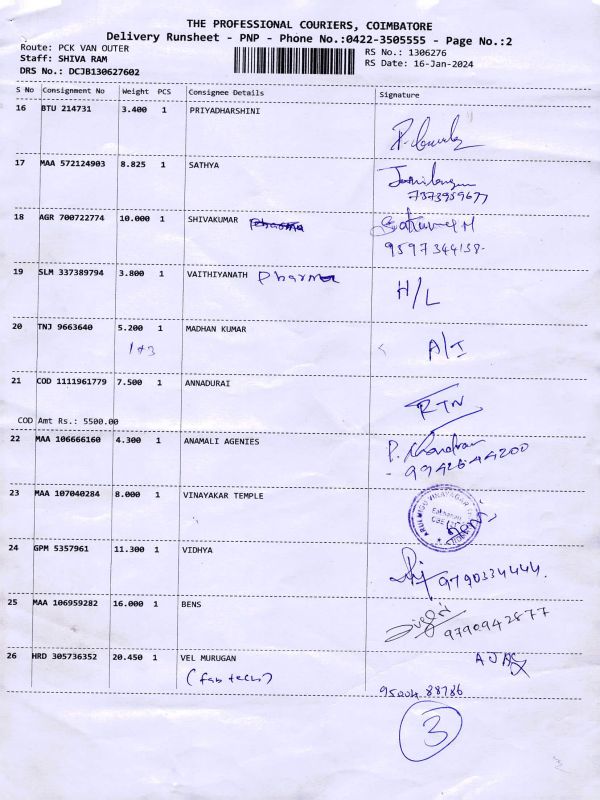 THE PROFESSIONAL COURIERS, COIMBATORE
Delivery Runsheet - PNP - Phone No.:0422-3505555 - Page No.:2
Route: PCK VAN OUTER RS No.: 1306276
Staff: SHIVA RAM RS Date: 16-Jan-2024
DRS No.: DCJB130627602
S No Consignment No Weight PCS Consignee Details Signature
16 BTU 214731 3.400 1 PRIYADHARSHINI
17 MAA 572124903 8.825 1 SATHYA
7373959677
18 AGR 700722774 10.000 1 SHIVAKUMAR Pharma
9597344138.
19 SLM 337389794 3.800 1 VAITHIYANATH Pharma H/L
20 TNJ 9663640 5.200 1 MADHAN KUMAR A/I
1 of 3
21 COD 1111961779 7.500 1 ANNADURAI RTN
COD Amt Rs.: 5500.00
22 MAA 106666160 4.300 1 ANAMALI AGENIES P. Chandran
9942644200
23 MAA 107040284 8.000 1 VINAYAKAR TEMPLE
24 GPM 5357961 11.300 1 VIDHYA 9790334444.
25 MAA 106959282 16.000 1 BENS 9790942877
26 HRD 305736352 20.450 1 VEL MURUGAN AJAY
(fab tech)
95004 88786
3